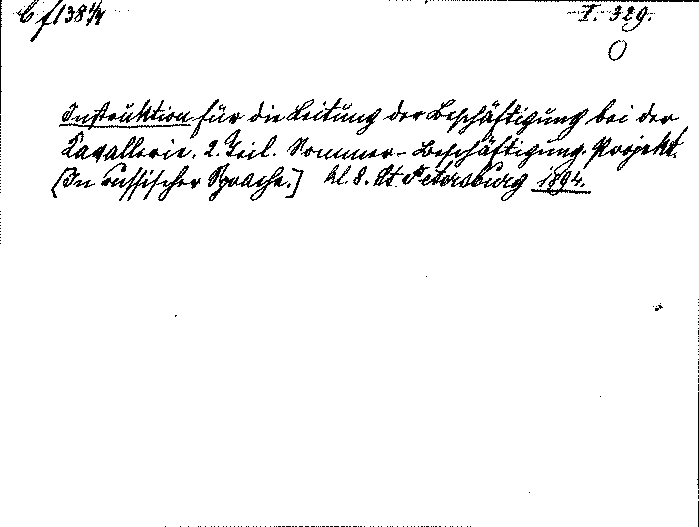 Cf 138 1/4 I. 329.
O
Instruktion für die Leitung der Beschäftigung bei der
Kavallerie. 2. Teil. Sommer-Beschäftigung. Projekt.
[In russischer Sprache.] kl. 8. St. Petersburg 1894.